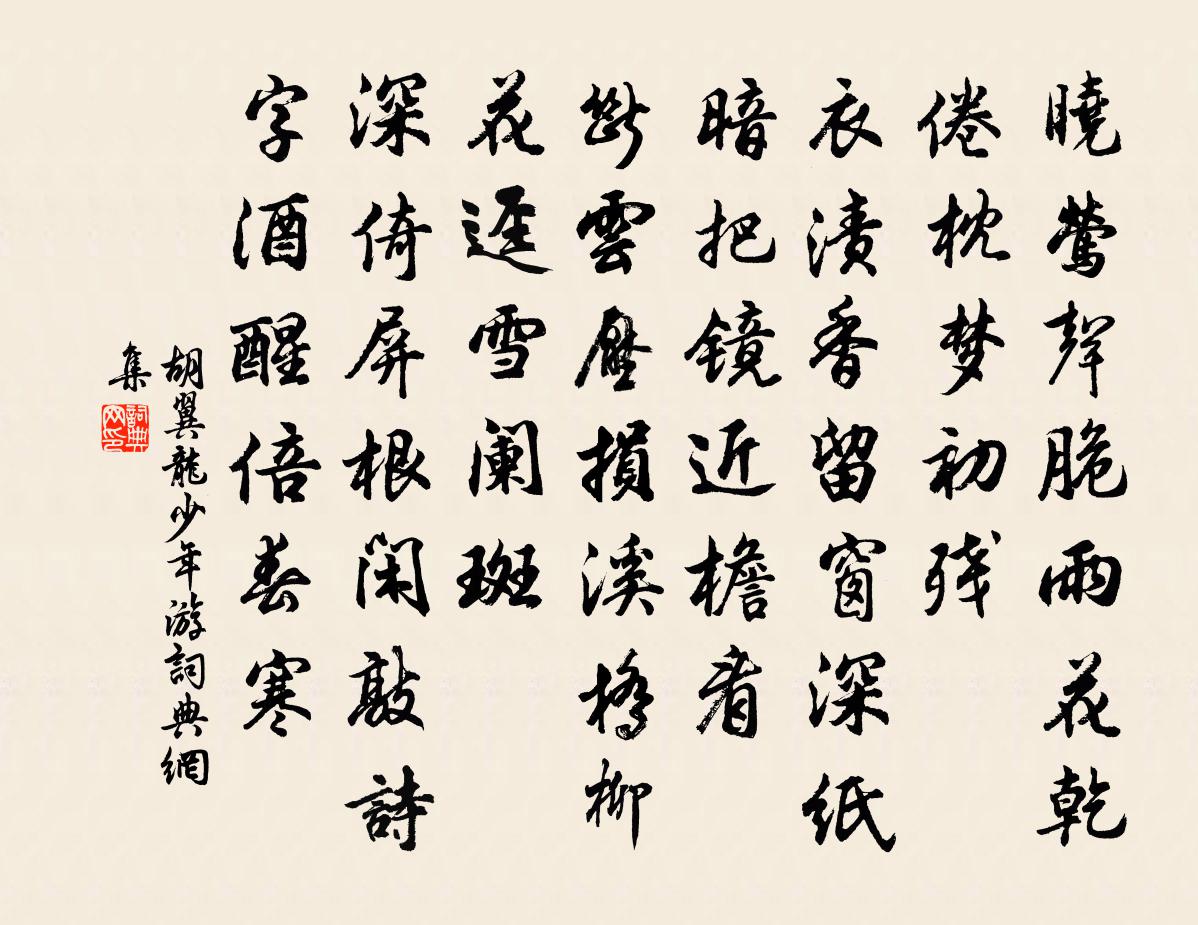 曉鶯聲脆雨花乾
倦枕梦初残
衣漬香留窗深紙
暗把镜近檐看
斷雲壓損溪橋柳
花遲雪阑斑
深倚屏根閑敲詩
字酒醒倍春寒
胡翼龍少年游詞典網
集
詞典网印